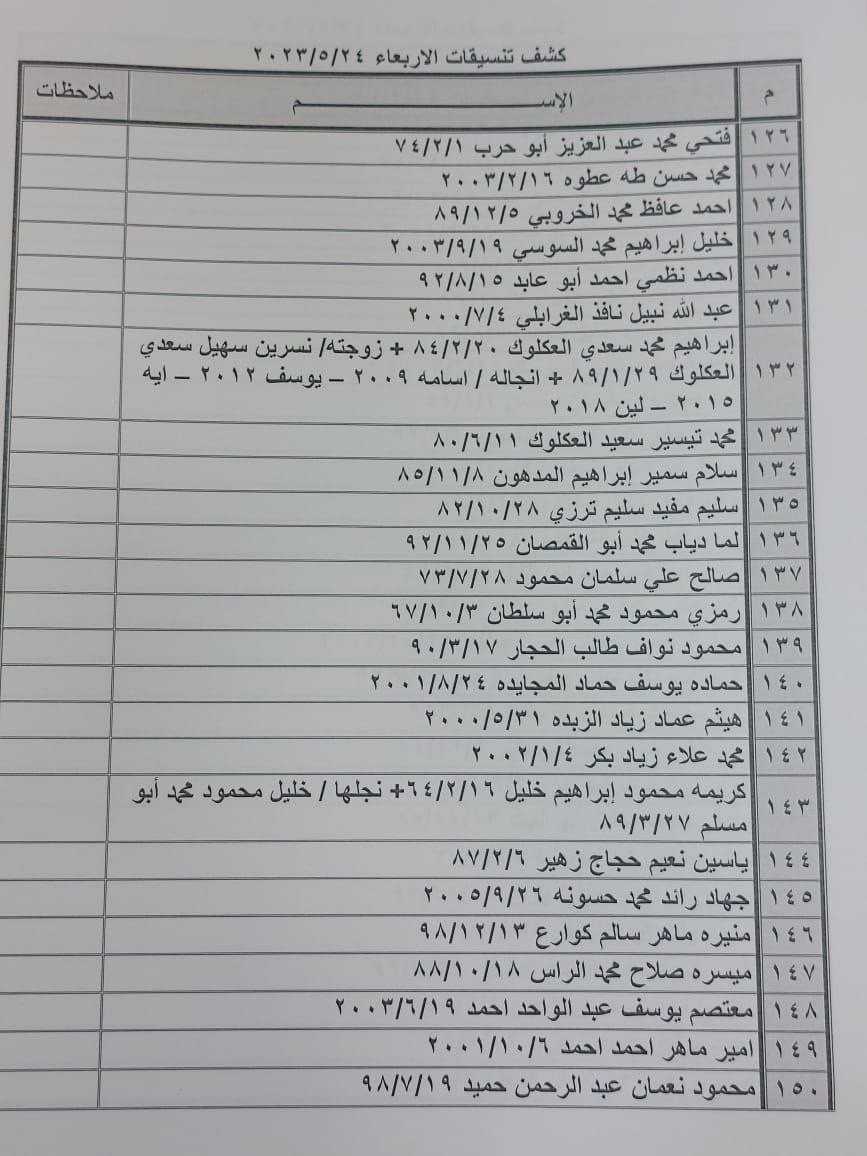 كشف تنسيقات الاربعاء ٢٠٢٣/٥/٢٤
م الإســـــــــم ملاحظات
١٢٦ فتحي محمد عبد العزيز أبو حرب ٧٤/٢/١
١٢٧ محمد حسن طه عطوه ٢٠٠٣/٢/١٦
١٢٨ احمد عافظ محمد الخروبي ٨٩/١٢/٥
١٢٩ خليل إبراهيم محمد السوسي ٢٠٠٣/٩/١٩
١٣٠ احمد نظمي احمد أبو عابد ٩٢/٨/١٥
١٣١ عبد الله نبيل نافذ الغرابلي ٢٠٠٠/٧/٤
١٣٢ إبراهيم محمد سعدي العكلوك ٨٤/٢/٢٠ + زوجته/ نسرين سهيل سعدي
العكلوك ٨٩/١/٢٩ + انجاله / اسامه ٢٠٠٩ – يوسف ٢٠١٢ – ايه
٢٠١٥ – لين ٢٠١٨
١٣٣ محمد تيسير سعيد العكلوك ٨٠/٦/١١
١٣٤ سلام سمير إبراهيم المدهون ٨٥/١١/٨
١٣٥ سليم مفيد سليم ترزي ٨٢/١٠/٢٨
١٣٦ لما دياب محمد أبو القمصان ٩٢/١١/٢٥
١٣٧ صالح علي سلمان محمود ٧٣/٧/٢٨
١٣٨ رمزي محمود محمد أبو سلطان ٦٧/١٠/٣
١٣٩ محمود نواف طالب الحجار ٩٠/٣/١٧
١٤٠ حماده يوسف حماد المجايده ٢٠٠١/٨/٢٤
١٤١ هيثم عماد زياد الزبده ٢٠٠٠/٥/٣١
١٤٢ محمد علاء زياد بكر ٢٠٠٢/١/٤
١٤٣ كريمه محمود إبراهيم خليل ٦٤/٢/١٦+ نجلها / خليل محمود محمد أبو
مسلم ٨٩/٣/٢٧
١٤٤ ياسين نعيم حجاج زهير ٨٧/٢/٦
١٤٥ جهاد رائد محمد حسونه ٢٠٠٥/٩/٢٦
١٤٦ منيره ماهر سالم كوارع ٩٨/١٢/١٣
١٤٧ ميسره صلاح محمد الراس ٨٨/١٠/١٨
١٤٨ معتصم يوسف عبد الواحد احمد ٢٠٠٣/٦/١٩
١٤٩ امير ماهر احمد احمد ٢٠٠١/١٠/٦
١٥٠ محمود نعمان عبد الرحمن حميد ٩٨/٧/١٩